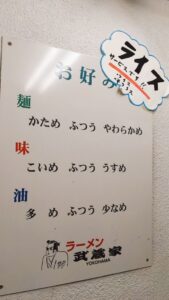 ライス
サービスです!!
お好み
麺
かため ふつう やわらかめ
味
こいめ ふつう うすめ
油
多め ふつう 少なめ
ラーメン
武蔵家
YOKOHAMA